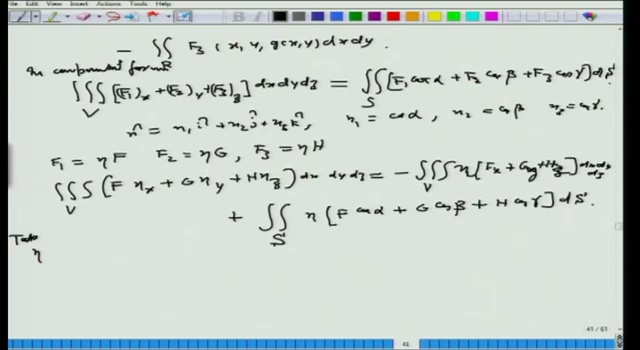 File Edit View Insert Actions Tools Help
− ∬_R F₃ (x, y, g(x,y)) dx dy.
In component form
∭_V [(F₁)_x + (F₂)_y + (F₃)_z] dx dy dz = ∬_S [F₁ cos α + F₂ cos β + F₃ cos γ] dS
n̂ = n₁ î + n₂ ĵ + n₃ k̂, n₁ = cos α, n₂ = cos β n₃ = cos γ.
F₁ = ηF F₂ = ηG, F₃ = ηH
∭_V (F η_x + G η_y + H η_z) dx dy dz = − ∭_V η [F_x + G_y + H_z] dx dy dz
+ ∬_S η [F cos α + G cos β + H cos γ] dS.
Take
η
41 / 61
41